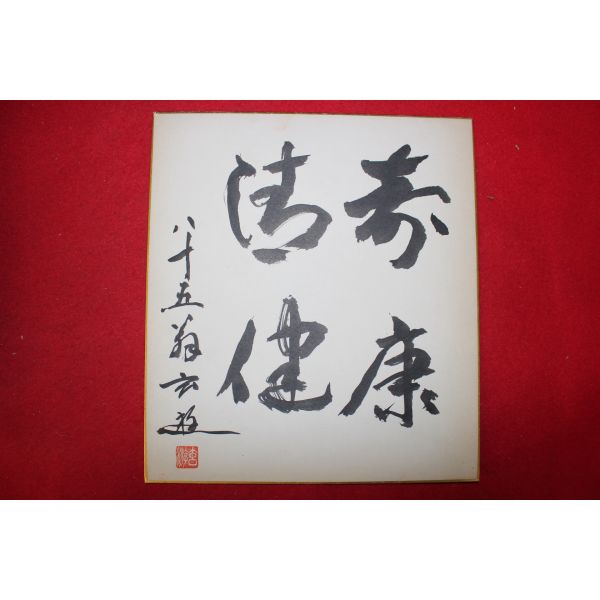 寿康
清健
八十五翁玄遊